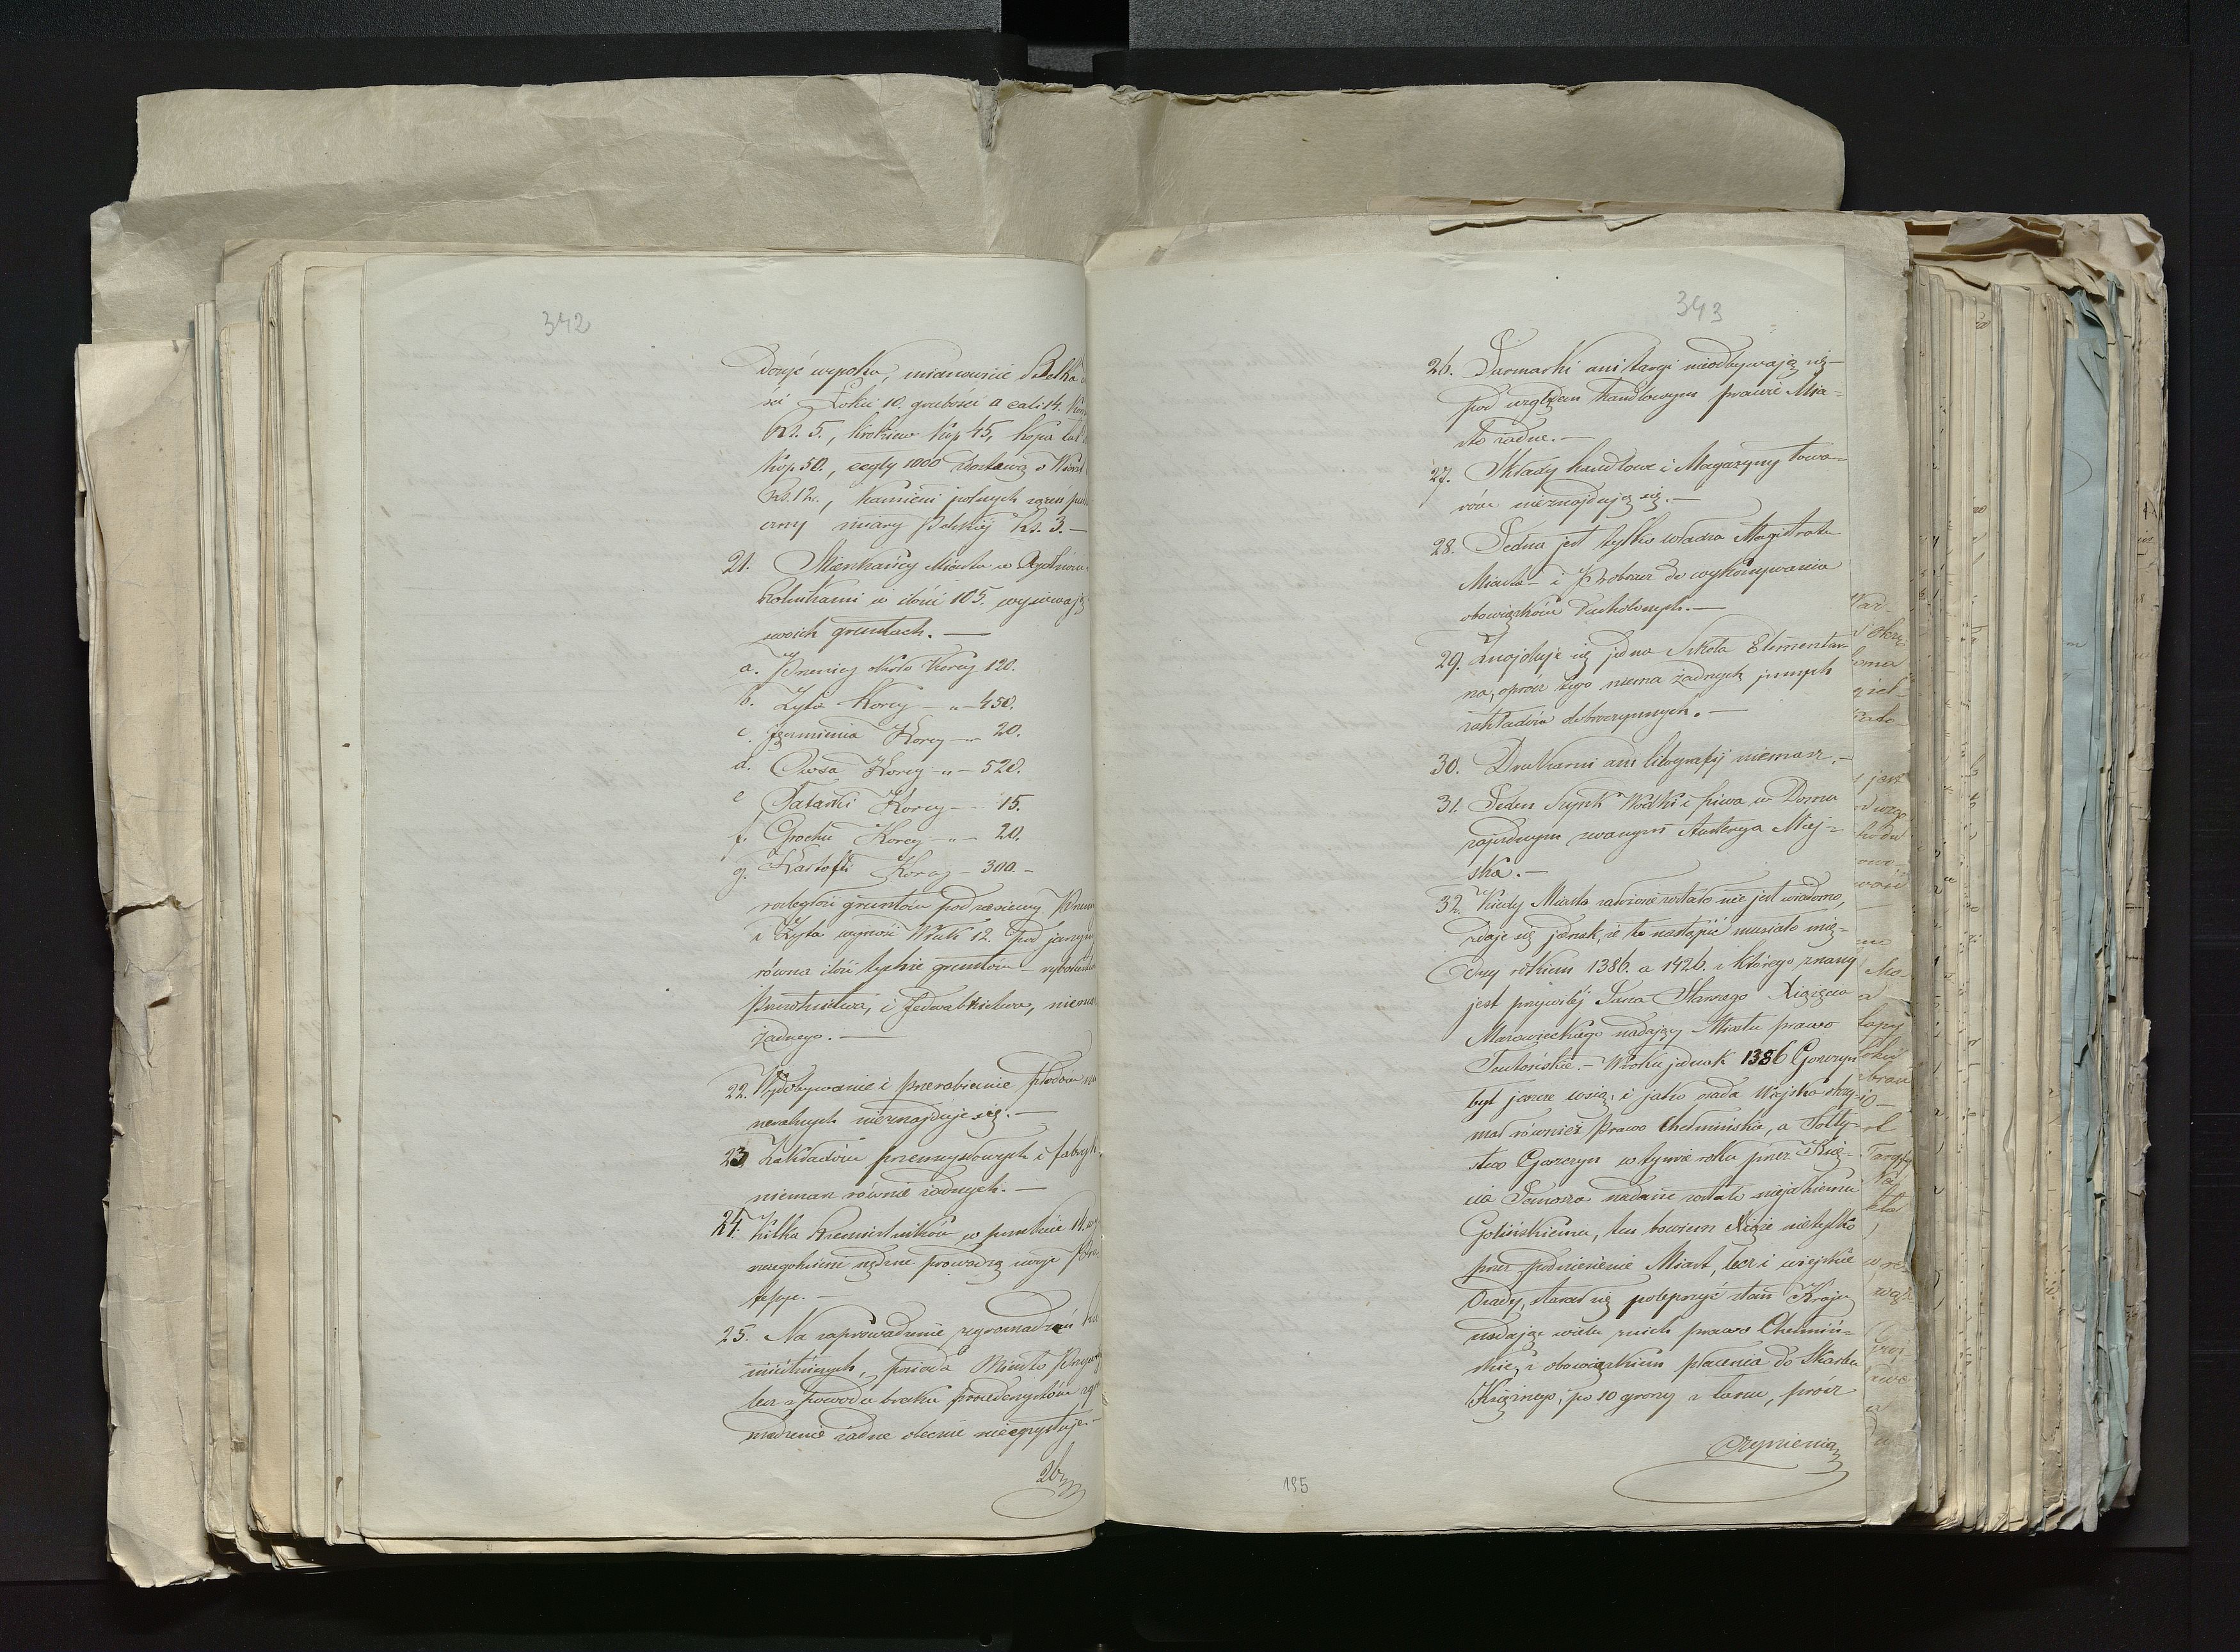 342
Dowje wysoka, mianowicie Belka
ści Łokci 10. grubości a cali 14.
Rs. 5., krokiew kop 45, kopa łat
kop 50., cegły 1000 z dostawą
Rs. 12., kamieni polnych sążeń
erny miary Polskiej Rs. 3.—
21. Mieszkańcy Miasta
Rolnikami w ilości 105. wysiewają
swoich gruntach.—
a. Pszenicy około Korcy 120.
b. Żyta Korcy — „ — 450.
c. Jęczmienia Korcy — „ 20.
d. Owsa Korcy — „ — 520.
e Tatarki Korcy — — 15.
f. Grochu Korcy — „ — 20.
g. Kartofli Korcy — 300.—
rozległość gruntów pod zasiewy
i Żyta wynosi Włuk 12. Pod jarzyny
równa ilość tychże gruntów — rybołostwa
Pszczolnictwa, i Jedwabnictwa, niema
żadnego.—
22. Wydobywanie i przerabianie płodów
neralnych nieznajduje się.—
23. Zakładów przemysłowych i fabryk
niemasz równie żadnych.—
24. Kilka Rzemieślników w punkcie 14.
szczególnieni nędzne prowadzą swoje
fessye.—
25. Na zaprowadzenie zgromadzeń
mieślniczych, posiada Miasto
lecz z powodu braku Professyonistów
madzenie żadne obecnie nieegzystuje.—
26.
343
26. Jarmarki ani targi nieodbywają się —
pod względem handlowym prawie Mia=
sto żadne.—
27. Składy handlowe i Magazyny towa=
rów nieznajdują się.—
28. Jedna jest tylko władza Magistratu
Miasta — i Proboszcz do wykonywania
obowiązków Duchownych.—
29. Znajduje się jedna Szkoła Elementar
na, oprócz tego niema żadnych innych
zakładów dobroczynnych.—
30. Drukarni ani litografij niemasz.—
31. Jeden Szynk Wódki i piwa w Domu
zajezdnym zwanym Austerya Miej=
ska.—
32. Kiedy Miasto założone zostało nie jest wiadomo,
zdaje się jednak, że to nastąpić musiało mię=
dzy rokiem 1386. a 1426. z którego znany
jest przywilej Jana Starszego Xiążęcia
Mazowieckiego nadający Miastu prawo
Teutońskie.— W roku jednak 1386 Goszczyn
był jeszcze wsią, i jako osada Wiejska otrzy=
mał również Prawo Chełmińskie, a Sołty=
stwo Goszczyn w tymże roku przez Xię=
cia Janusza nadane zostało niejakiemu
Golińskiemu, ten bowiem Xiąże nietylko
przez podniesienie Miast, lecz i wiejskie
Osady, starał się polepszyć stan Kraju
nadając wielu z nich prawo Chełmiń=
skie, z obowiązkiem płacenia do Skarbu
Książęcego, po 10 groszy z łanu, prócz
czynienia
195